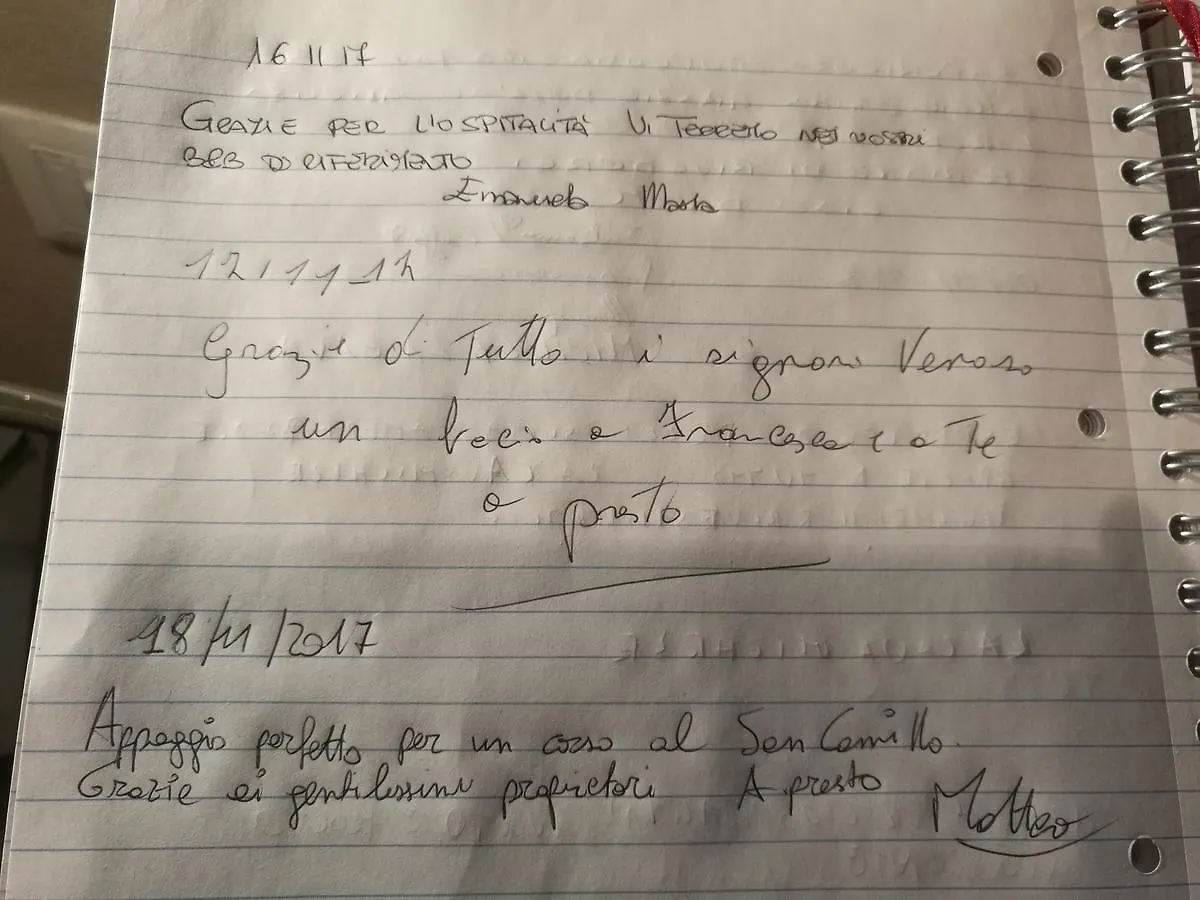 16 11 17
GRAZIE PER L'OSPITALITÀ VI TERREMO NEI NOSTRI
B&B DI RIFERIMENTO
Emanuela Marta
Grazie di Tutto i signori Veroso
un bacio a Francesca e a Te
a presto
18/11/2017
Appoggio perfetto per un corso al San Camillo.
Grazie ai gentilissimi proprietari A presto Matteo